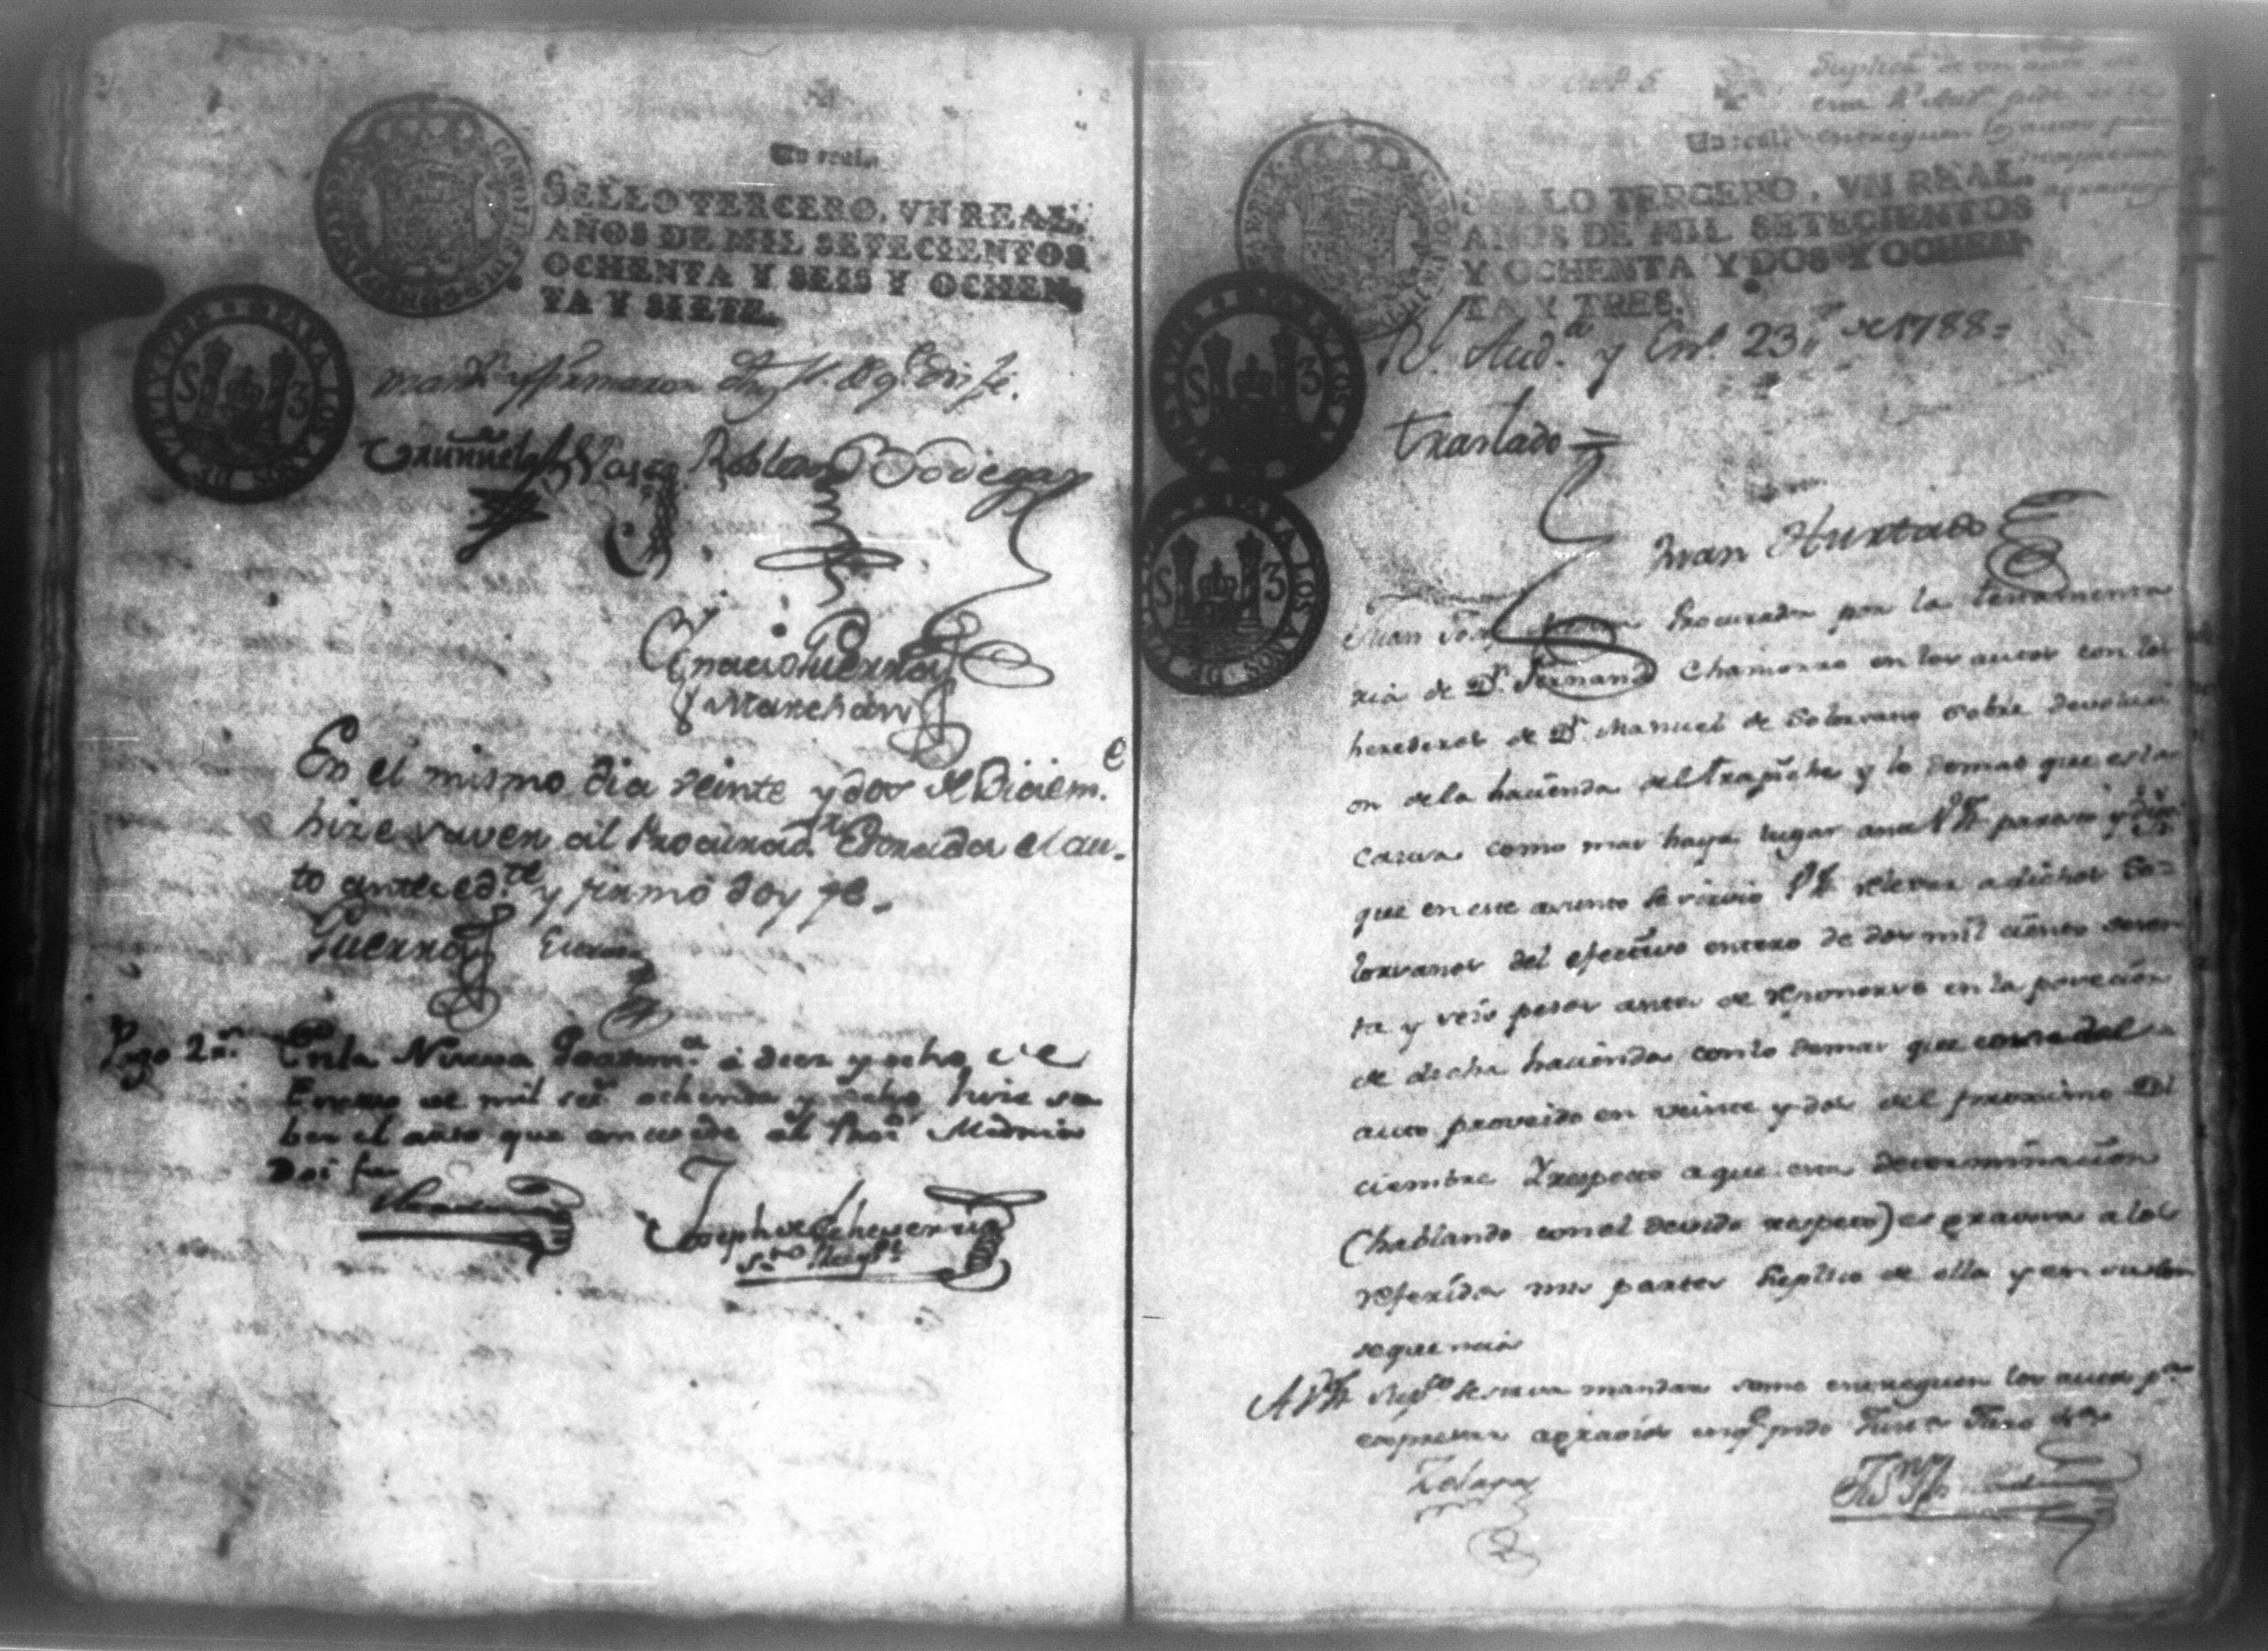 Un real.
SELLO TERCERO, VN REAL,
AÑOS DE MIL SETECIENTOS
OCHENTA Y SEIS Y OCHEN
TA Y SIETE.
S 3
mand.n y firmaron doy fe.
Robledo Bodega
Ygnacio Guerra
y Marchan
En el mismo dia veinte y dos de Diciem.e
hize saver al Procurad.r Estrada el au-
to anteced.te y firmó doy fe.
Guerra Estrada
Pago 2 r.s En la Nueva Goatem.a á diez y ocho de
Enero de mil set.s ochenta y ocho hize sa
ber el auto que antecede al Proc.r
Doi fe
Joseph de Echeverria
Un real
Suplica de un auto de
esta R.l Aud.a pide se le
entreguen los autos para
SELLO TERCERO, VN REAL.
AÑOS DE MIL SETECIENTOS
Y OCHENTA Y DOS Y OCHEN
TA Y TRES.
S 3
S 3
R.l Aud.a y En.o 23, de 1788=
traslado =
Juan Hurtado
Juan Procurador por la testamenta
ria de D.n Fernando Chamorro en los autos con los
herederos de D.n Manuel de Solorzano sobre devoluci
on de la hacienda del trapiche y lo demas que es la
causa como mas haya lugar ante VA paresco y digo
que en este asunto se sirvió VA relevar a dichos So=
lorzanos del efectivo entero de dos mil ciento seten
ta y seis pesos antes de reponerse en la posecion
de dicha hacienda con lo demas que consta del
auto proveido en veinte y dos del proximo Di
ciembre Y respecto a que esta determinacion
(hablando con el devido respeto) es gravosa a los
referidos mis partes suplico de ella y en su con
sequencia
A VA sup.co se sirva mandar se me entreguen los autos p.a
expresar agravios en q.e pido Justa Juro &.a
Zelaya